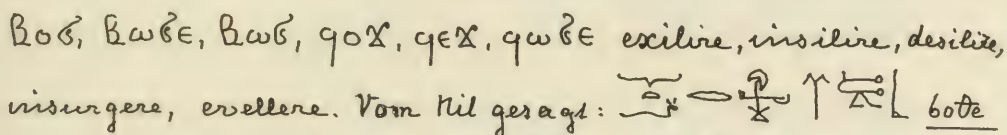 ⲃⲟϭ, ⲃⲱϭⲉ, ⲃⲱϭ, ϥⲟϫ, ϥⲉϫ, ϥⲱϭⲉ exilire, insilire, desilire,
insurgere, evellere. Vom Nil gesagt: botte